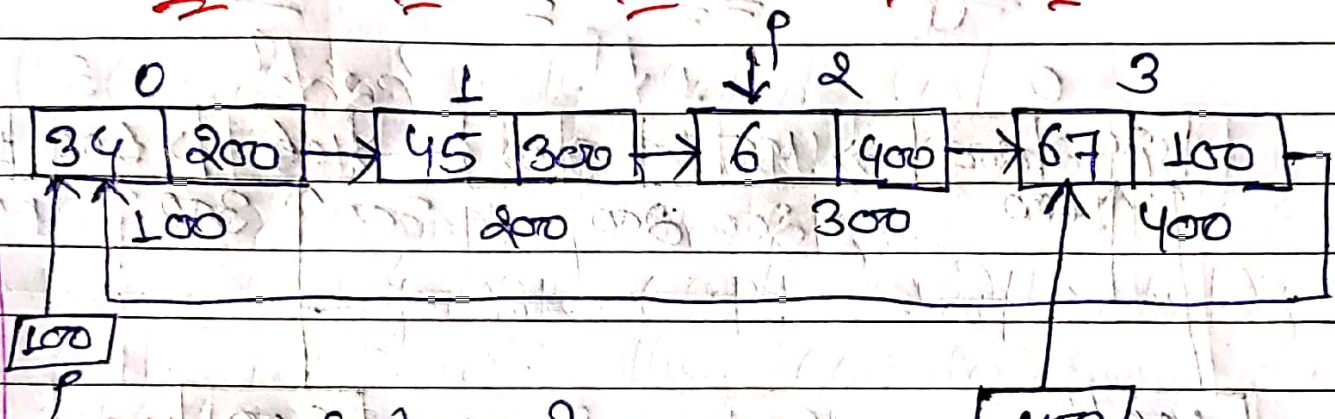 p
0 1 2 3
34 200 45 300 6 400 67 100
100 200 300 400
100
p